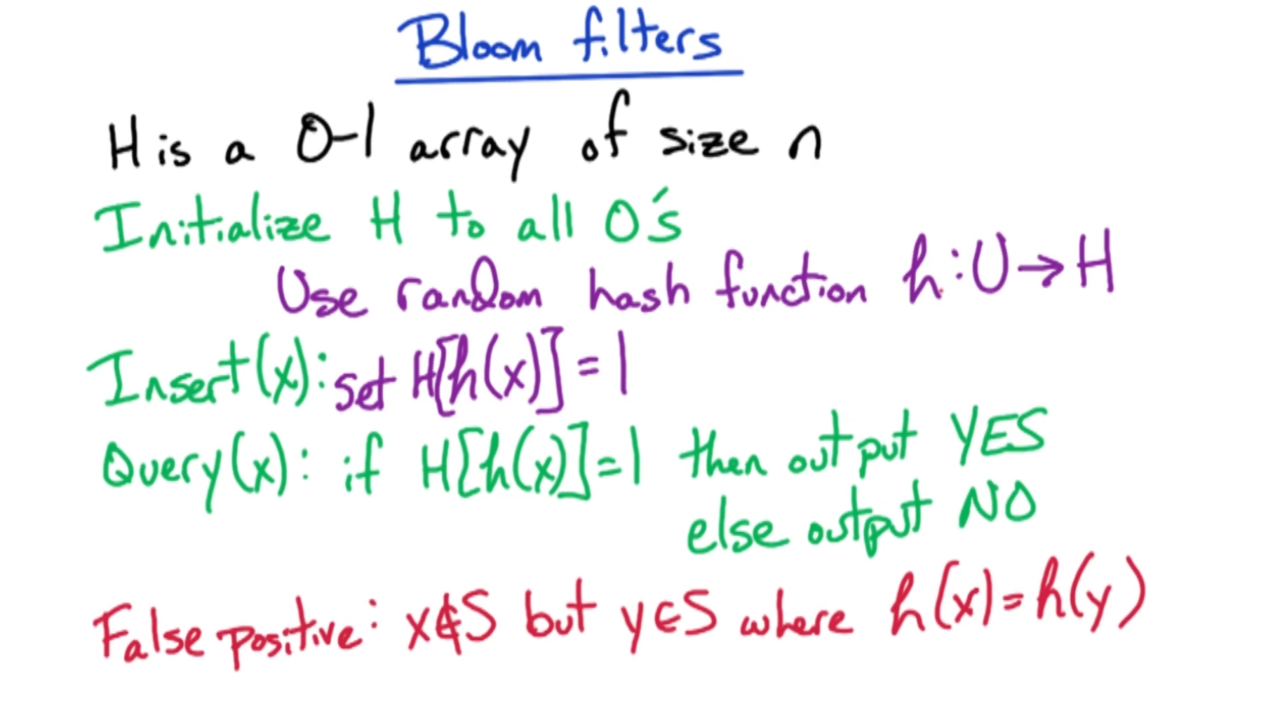 Bloom filters
H is a 0-1 array of size n
Initialize H to all 0's
Use random hash function h: U→H
Insert(x): set H[h(x)] = 1
Query(x): if H[h(x)]=1 then output YES
else output NO
False positive: x∉S but y∈S where h(x)=h(y)